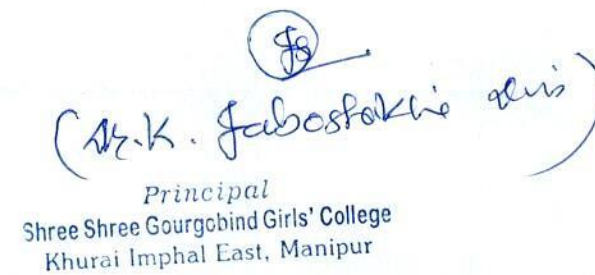 (Dr. K. Jabosakhi Devi)
Principal
Shree Shree Gourgobind Girls' College
Khurai Imphal East, Manipur